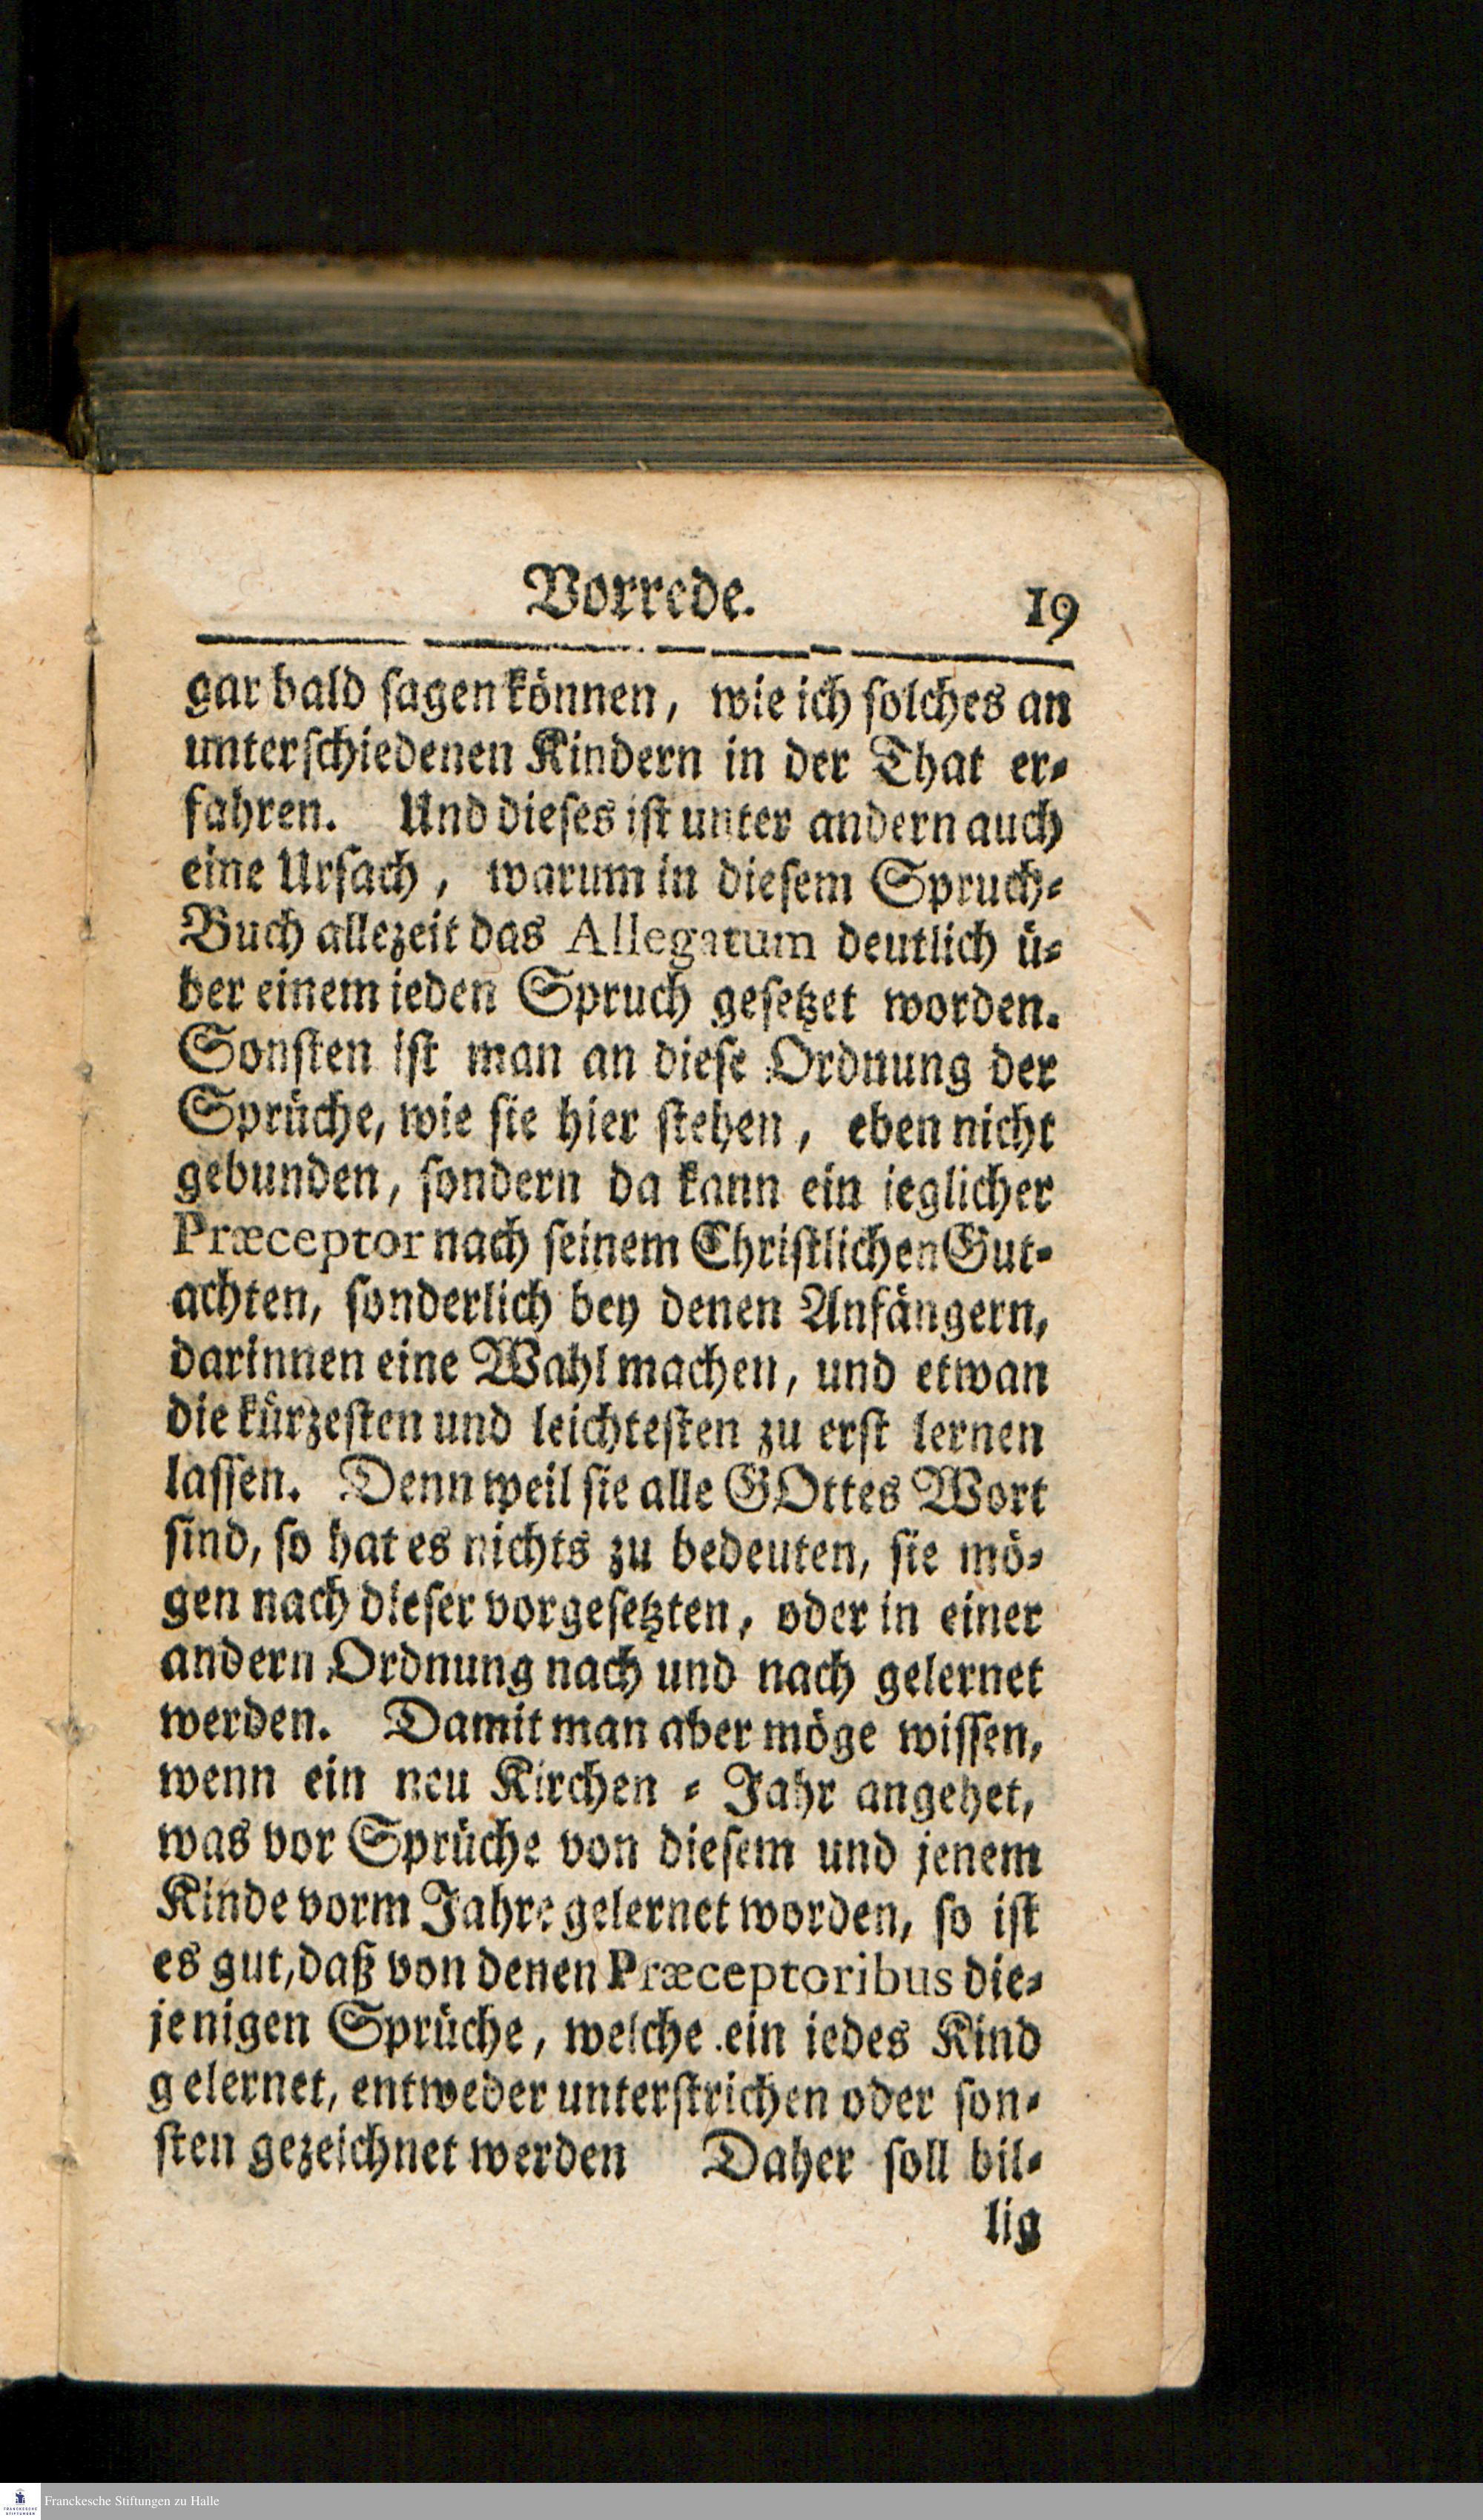 Vorrede. 19
gar bald sagen können, wie ich solches an
unterschiedenen Kindern in der That er-
fahren. Und dieses ist unter andern auch
eine Ursach, warum in diesem Spruch-
Buch allezeit das Allegatum deutlich ü-
ber einem ieden Spruch gesetzet worden.
Sonsten ist man an diese Ordnung der
Sprüche, wie sie hier stehen, eben nicht
gebunden, sondern da kann ein ieglicher
Præceptor nach seinem Christlichen Gut-
achten, sonderlich bey denen Anfängern,
darinnen eine Wahl machen, und etwan
die kürzesten und leichtesten zu erst lernen
lassen. Denn weil sie alle GOttes Wort
sind, so hat es nichts zu bedeuten, sie mö-
gen nach dieser vorgesetzten, oder in einer
andern Ordnung nach und nach gelernet
werden. Damit man aber möge wissen,
wenn ein neu Kirchen - Jahr angehet,
was vor Sprüche von diesem und jenem
Kinde vorm Jahre gelernet worden, so ist
es gut, daß von denen Præceptoribus die-
jenigen Sprüche, welche ein iedes Kind
gelernet, entweder unterstrichen oder son-
sten gezeichnet werden Daher soll bil-
lig
FRANCKESCHE
STIFTUNGEN
Franckesche Stiftungen zu Halle